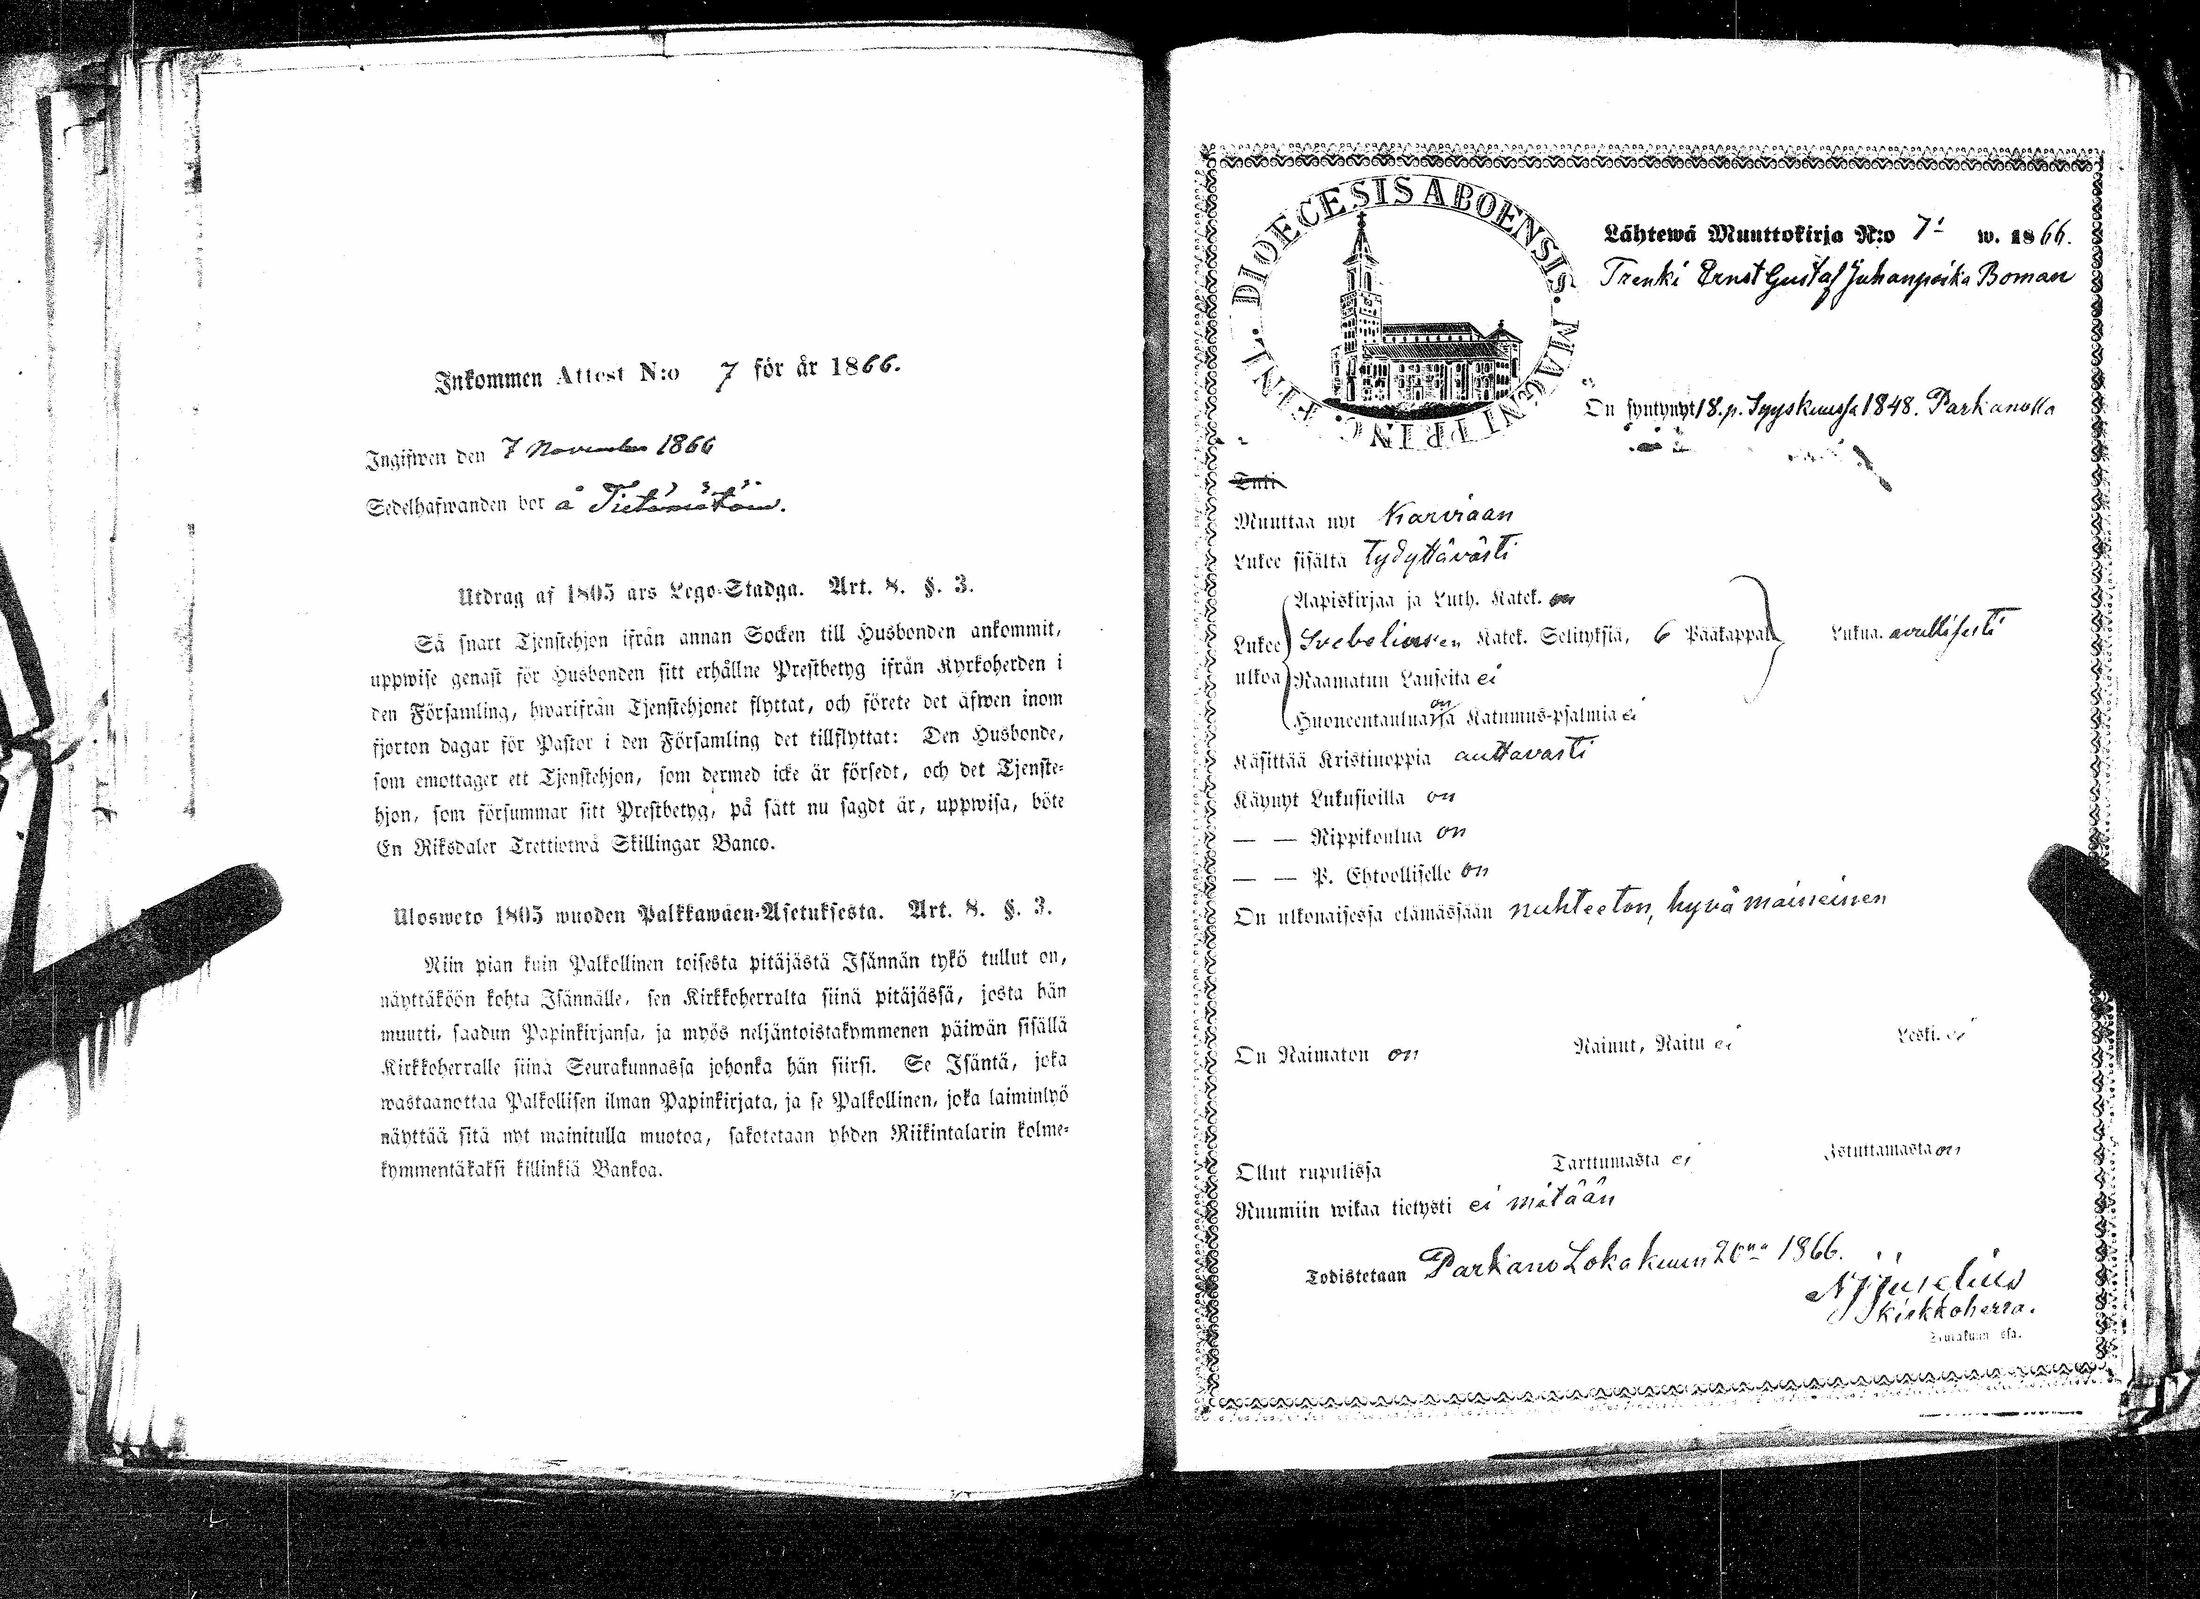 Inkommen Attest N:o 7 för år 1866.
Ingifwen den 7 November 1866
Sedelhafwanden bor å
Utdrag af 1805 ars Lego-Stadga. Art. 8. §. 3.
Så snart Tjenstehjon ifrån annan Socken till Husbonden ankommit,
uppwise genast för Husbonden sitt erhållne Prestbetyg ifrån Kyrkoherden i
den Församling, hwarifrån Tjenstehjonet flyttat, och förete det äfwen inom
fjorton dagar för Pastor i den Församling det tillflyttat: Den Husbonde,
som emottager ett Tjenstehjon, som dermed icke är försedt, och det Tjenste-
hjon, som försummar sitt Prestbetyg, på sätt nu sagdt är, uppwisa, böte
En Riksdaler Trettiotwå Skillingar Banco.
Ulosweto 1805 wuoden Palkkawäen-Asetuksesta. Art. 8. §. 3.
Niin pian kuin Palkollinen toisesta pitäjästä Isännän tykö tullut on,
näyttäköön kohta Isännälle, sen Kirkkoherralta siinä pitäjässä, josta hän
muutti, saadun Papinkirjansa, ja myös neljäntoistakymmenen päiwän sisällä
Kirkkoherralle siinä Seurakunnassa johonka hän siirsi. Se Isäntä, joka
wastaanottaa Palkollisen ilman Papinkirjata, ja se Palkollinen, joka laiminlyö
näyttää sitä nyt mainitulla muotoa, sakotetaan yhden Riikintalarin kolme-
kymmentäkaksi killinkiä Bankoa.
DIOECESIS ABOENSIS. MAGNI PRINC. FINL.
Lähtewä Muuttokirja N:o 7 w. 1866.
Trenki Ernst Gustaf Juhanpoika Boman
On syntynyt 18. p. Syyskuussa 1848. Parkanolla
Tuli
Muuttaa nyt Karviaan
Lukee sisältä tydyttävästi
Aapiskirjaa ja Luth. Katek. on
Lukee ulkoa Svebeliuksen Katek. Selityksiä, 6 Pääkappal. Lukua. avullisesti
Raamatun Lauseita ei
Huoneentaulua on ja Katumus-psalmia ei
Käsittää Kristinoppia auttavasti
Käynyt Lukusioilla on
— — Rippikoulua on
— — P. Ehtoolliselle on
On ulkonaisessa elämässään nuhteeton, hyvä maineinen
On Naimaton on Nainut, Naitu ei Leski. ei
Ollut rupulissa Tarttumasta ei Istuttamasta on
Ruumiin wikaa tietysti ei mitään
Todistetaan Parkano Lokakuun 26na 1866.
Kirkkoherra.
Seurakunn ssa.